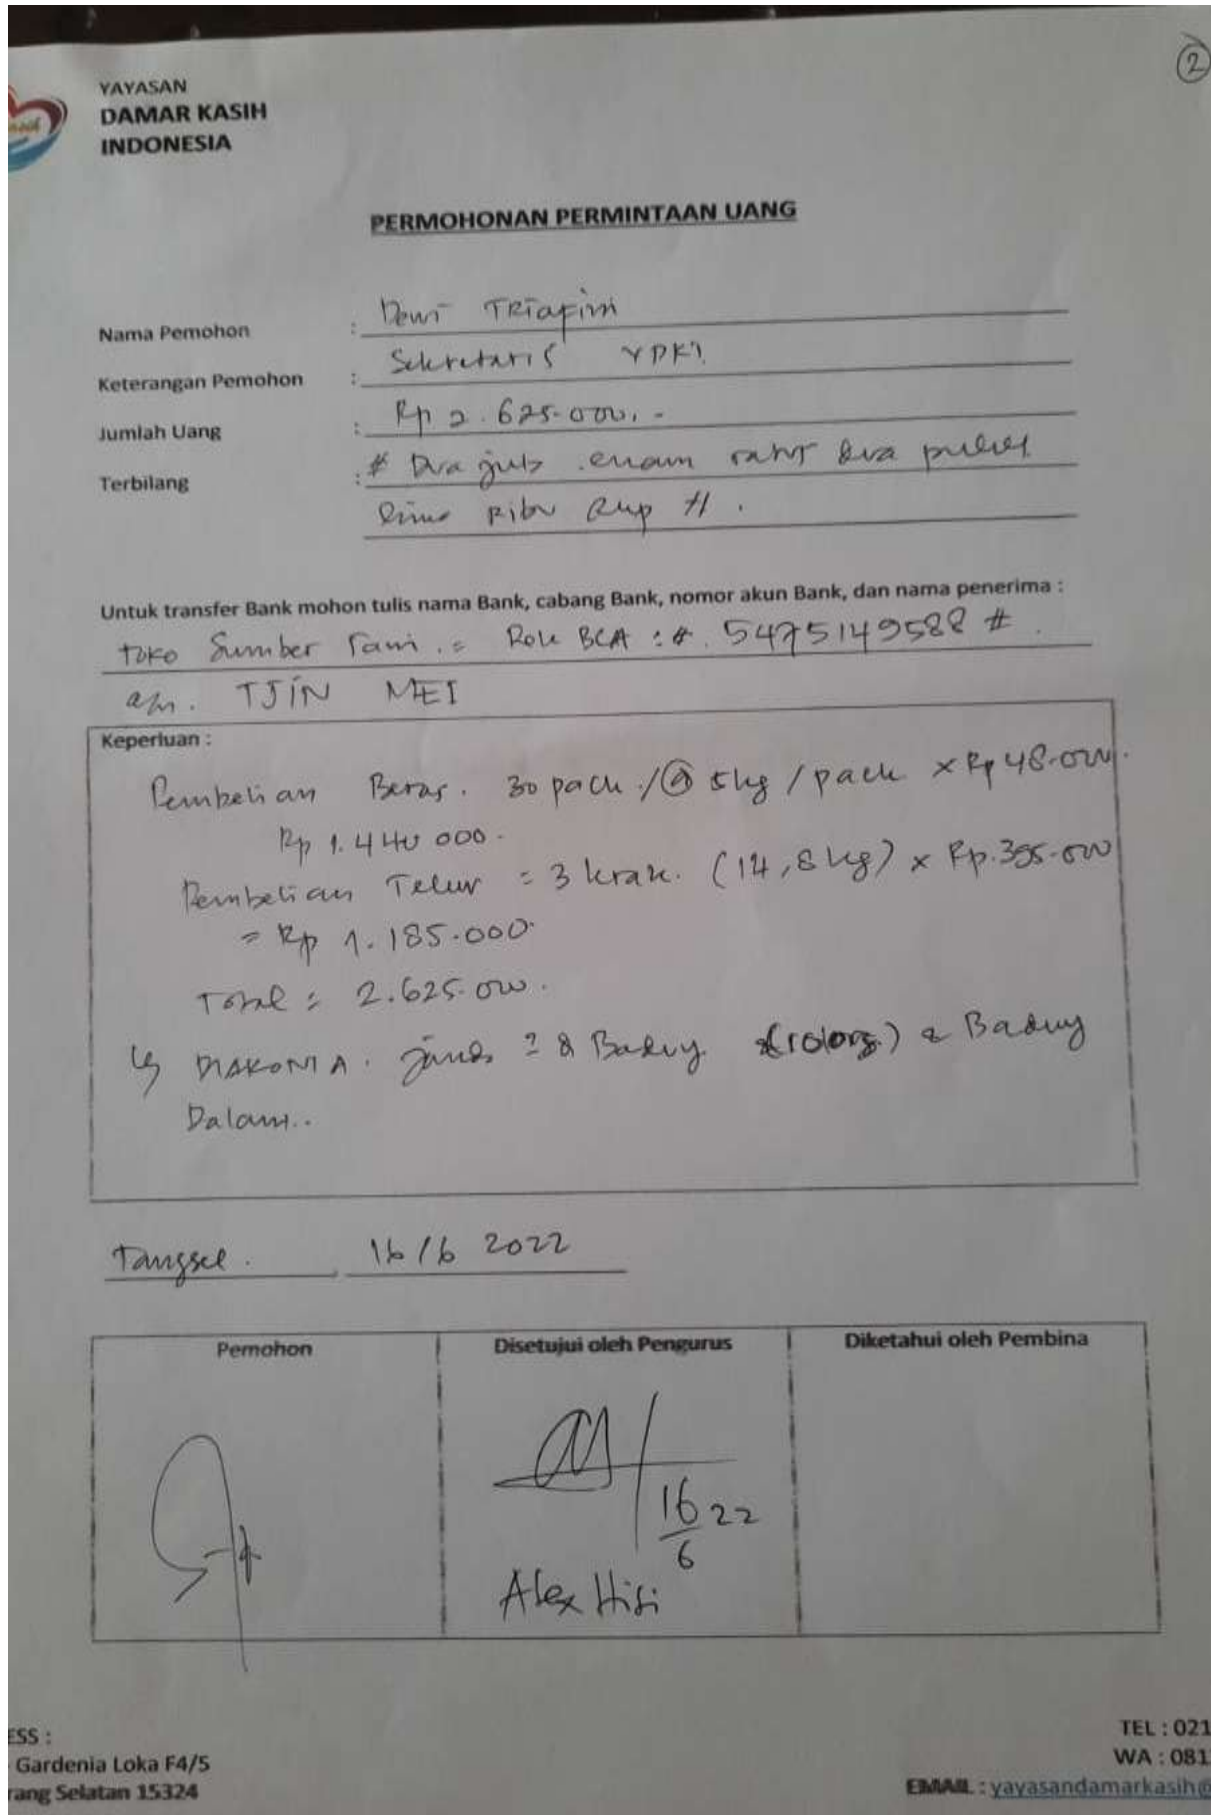 2
YAYASAN
DAMAR KASIH
INDONESIA
PERMOHONAN PERMINTAAN UANG
Nama Pemohon : Dewi
Keterangan Pemohon : Sekretaris YDKI
Jumlah Uang : Rp 2.625.000,-
Terbilang : # Dua juta enam ratus dua puluh
lima Ribu Rup #.
Untuk transfer Bank mohon tulis nama Bank, cabang Bank, nomor akun Bank, dan nama penerima :
Toko Sumber Tani = Rek BCA : #. 5475149588 #.
a/n. TJIN MEI
Keperluan :
Pembelian Beras. 30 pack /@ 5 kg / pack x Rp 48.000.
Rp 1.440 000.
Pembelian Telur = 3 krak. (14,8 kg) x Rp. 395.000
= Rp 1.185.000.
Total = 2.625.000.
DIAKONIA. Baduy & Baduy
Dalam..
Tangsel. , 16/6 2022
Pemohon Disetujui oleh Pengurus Diketahui oleh Pembina
16/6 22
Alex
ESS :
Gardenia Loka F4/5
rang Selatan 15324
TEL : 021
WA : 081
EMAIL : yayasandamarkasih@